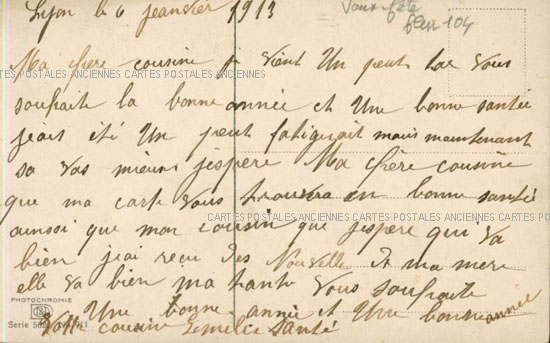 Lyon le 6 jeanvier 1913
fév 104
Ma chère cousine je vient Un peut tar vous
CARTES POSTALES ANCIENNES CARTES POSTALES ANCIENNES CARTES POSTALES ANCIENNES CARTES POSTALES
souhaite la bonne année et Une bonne santée
jeait été Un peut fatiguait mais maintenant
sa vas mieux jespere Ma chère cousine
que ma carte vous trouvera en bonne santé
CARTES POSTALES ANCIENNES CARTES POSTALES ANCIENNES CARTES POSTALES
aunssi que mon cousin que jespere qui va
bien jeai recu des Nouvelle de ma mere
elle va bien ma tante vous souhaite
PHOTOCHROMIE
Une bonne année et Une bonne année
Serie
Votre cousine santé